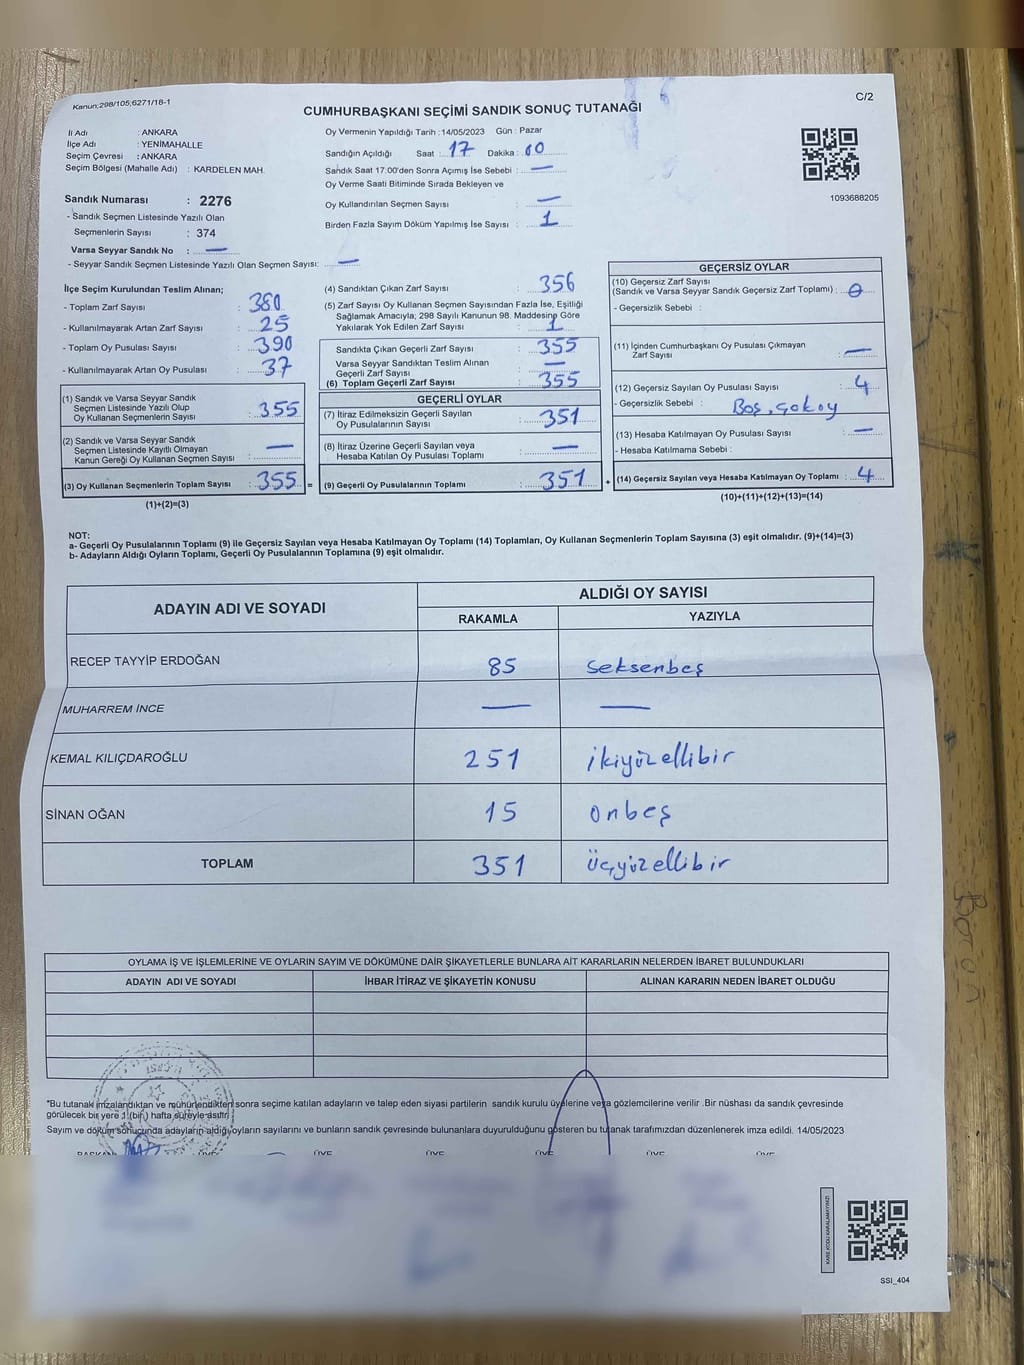 Kanun;298/105,6271/18-1
CUMHURBAŞKANI SEÇİMİ SANDIK SONUÇ TUTANAĞI
C/2
İl Adı : ANKARA
İlçe Adı : YENİMAHALLE
Seçim Çevresi : ANKARA
Seçim Bölgesi (Mahalle Adı) : KARDELEN MAH.
Sandık Numarası : 2276
- Sandık Seçmen Listesinde Yazılı Olan
Seçmenlerin Sayısı : 374
Varsa Seyyar Sandık No : —
- Seyyar Sandık Seçmen Listesinde Yazılı Olan Seçmen Sayısı: —
Oy Vermenin Yapıldığı Tarih : 14/05/2023 Gün : Pazar
Sandığın Açıldığı Saat : 17 Dakika : 00
Sandık Saat 17.00'den Sonra Açımış İse Sebebi : —
Oy Verme Saati Bitiminde Sırada Bekleyen ve
Oy Kullandırılan Seçmen Sayısı : —
Birden Fazla Sayım Döküm Yapılmış İse Sayısı : 1
1093688205
İlçe Seçim Kurulundan Teslim Alınan;
- Toplam Zarf Sayısı : 380
- Kullanılmayarak Artan Zarf Sayısı : 25
- Toplam Oy Pusulası Sayısı : 390
- Kullanılmayarak Artan Oy Pusulası : 37
(1) Sandık ve Varsa Seyyar Sandık
Seçmen Listesinde Yazılı Olup
Oy Kullanan Seçmenlerin Sayısı : 355
(2) Sandık ve Varsa Seyyar Sandık
Seçmen Listesinde Kayıtlı Olmayan
Kanun Gereği Oy Kullanan Seçmen Sayısı : —
(3) Oy Kullanan Seçmenlerin Toplam Sayısı : 355 =
(1)+(2)=(3)
(4) Sandıktan Çıkan Zarf Sayısı : 356
(5) Zarf Sayısı Oy Kullanan Seçmen Sayısından Fazla İse, Eşitliği
Sağlamak Amacıyla; 298 Sayılı Kanunun 98. Maddesine Göre
Yakılarak Yok Edilen Zarf Sayısı : 1
Sandıkta Çıkan Geçerli Zarf Sayısı : 355
Varsa Seyyar Sandıktan Teslim Alınan
Geçerli Zarf Sayısı : —
(6) Toplam Geçerli Zarf Sayısı : 355
GEÇERLİ OYLAR
(7) İtiraz Edilmeksizin Geçerli Sayılan
Oy Pusulalarının Sayısı : 351
(8) İtiraz Üzerine Geçerli Sayılan veya
Hesaba Katılan Oy Pusulası Toplamı : —
(9) Geçerli Oy Pusulalarının Toplamı : 351 +
GEÇERSİZ OYLAR
(10) Geçersiz Zarf Sayısı
(Sandık ve Varsa Seyyar Sandık Geçersiz Zarf Toplamı) : 0
- Geçersizlik Sebebi :
(11) İçinden Cumhurbaşkanı Oy Pusulası Çıkmayan
Zarf Sayısı : —
(12) Geçersiz Sayılan Oy Pusulası Sayısı : 4
- Geçersizlik Sebebi : Boş, çokoy
(13) Hesaba Katılmayan Oy Pusulası Sayısı : —
- Hesaba Katılmama Sebebi :
(14) Geçersiz Sayılan veya Hesaba Katılmayan Oy Toplamı : 4
(10)+(11)+(12)+(13)=(14)
NOT:
a- Geçerli Oy Pusulalarının Toplamı (9) ile Geçersiz Sayılan veya Hesaba Katılmayan Oy Toplamı (14) Toplamları, Oy Kullanan Seçmenlerin Toplam Sayısına (3) eşit olmalıdır. (9)+(14)=(3)
b- Adayların Aldığı Oyların Toplamı, Geçerli Oy Pusulalarının Toplamına (9) eşit olmalıdır.
ADAYIN ADI VE SOYADI
ALDIĞI OY SAYISI
RAKAMLA YAZIYLA
RECEP TAYYİP ERDOĞAN 85 seksenbeş
MUHARREM İNCE — —
KEMAL KILIÇDAROĞLU 251 ikiyüzellibir
SİNAN OĞAN 15 onbeş
TOPLAM 351 üçyüzellibir
OYLAMA İŞ VE İŞLEMLERİNE VE OYLARIN SAYIM VE DÖKÜMÜNE DAİR ŞİKAYETLERLE BUNLARA AİT KARARLARIN NELERDEN İBARET BULUNDUKLARI
ADAYIN ADI VE SOYADI İHBAR İTİRAZ VE ŞİKAYETİN KONUSU ALINAN KARARIN NEDEN İBARET OLDUĞU
*Bu tutanak imzalandıktan ve mühürlendikten sonra seçime katılan adayların ve talep eden siyasi partilerin sandık kurulu üyelerine veya gözlemcilerine verilir .Bir nüshası da sandık çevresinde
görülecek bir yere 1 (bir) hafta süreyle asılır.
Sayım ve döküm sonucunda adayların aldığı oyların sayılarını ve bunların sandık çevresinde bulunanlara duyurulduğunu gösteren bu tutanak tarafımızdan düzenlenerek imza edildi. 14/05/2023
BAŞKAN ÜYE ÜYE ÜYE ÜYE ÜYE ÜYE
SSI_404